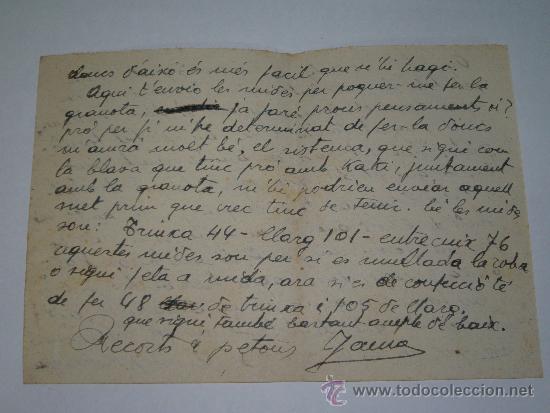 doncs d'aixó és més facil que n'hi hagi.
Aqui t'envio les mides per poguer-me fer la
granota, ja faré prous pensament si?
pró per fi m'he determinat de fer-la doncs
m'anirá molt bé, el sistema, que sigui com
la blava que tinc pró amb Kaki, juntament
amb la granota, m'hi podrieu enviar aquell
met prim que crec tinc de tenir. bé les mides
son: Trinxa 44 - llarg 101 - entrecuix 76
aquestes mides son per si es mullada la roba
o sigui feta a mida, ara si es de confecció té
de fer 48 de trinxa i 105 de llarg.
que sigui també bastant ample de baix.
Recorts i petons Jaume
todocoleccion
www.todocoleccion.net